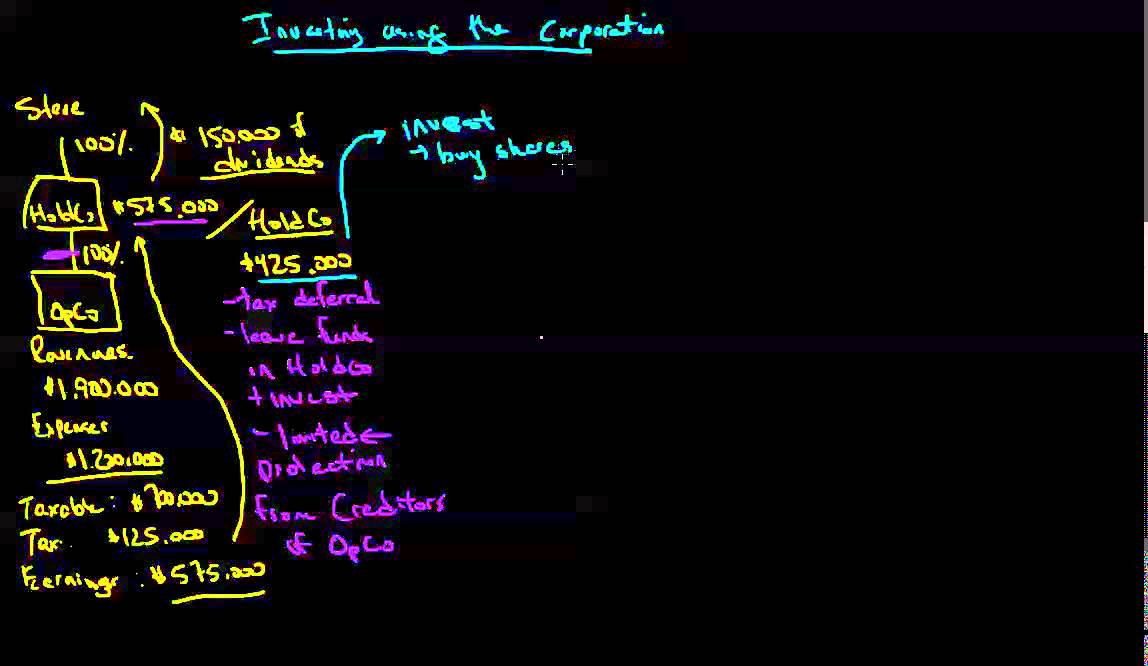 Investing using the Corporation
Steve
100%
$150,000 of
dividends
HoldCo
$575,000
100%
OpCo
Revenues
$1,900,000
Expenses
$1,200,000
Taxable: $700,000
Tax $125,000
Earnings: $575,000
HoldCo
$425,000
- tax deferral
- leave funds
in HoldCo
+ invest
- limited ←
protection
from Creditors
of OpCo
invest
→ buy shares